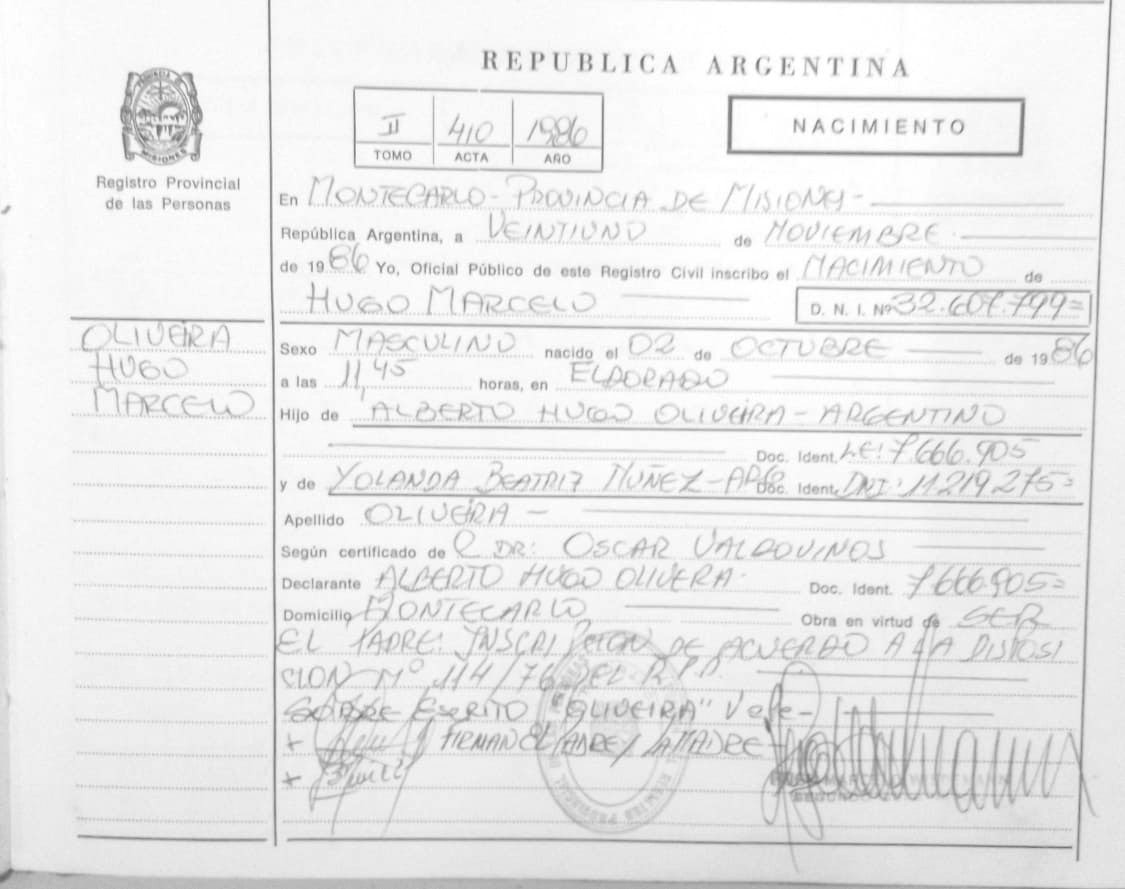 REPUBLICA ARGENTINA
II 410 1986
TOMO ACTA AÑO
NACIMIENTO
MISIONES
Registro Provincial
de las Personas
En MONTECARLO - PROVINCIA DE MISIONES -
República Argentina, a VEINTIUNO de NOVIEMBRE
de 1986 Yo, Oficial Público de este Registro Civil inscribo el NACIMIENTO de
HUGO MARCELO D. N. I. Nº 32.607.799=
OLIVEIRA
HUGO
MARCELO
Sexo MASCULINO nacido el 02 de OCTUBRE de 1986
a las 11,45 horas, en ELDORADO
Hijo de ALBERTO HUGO OLIVEIRA - ARGENTINO
Doc. Ident. LE: 7.666.905
y de YOLANDA BEATRIZ NUÑEZ - ARG Doc. Ident. DNI: 11.219.275=
Apellido OLIVEIRA -
Según certificado de DR: OSCAR VALDOVINOS
Declarante ALBERTO HUGO OLIVERA. Doc. Ident. 7666.905=
Domicilio MONTECARLO Obra en virtud de SER
EL PADRE: INSCRIPCION DE ACUERDO A LA DISPOSI
CION Nº 114/76 DEL R.P.P.
SOBRE ESCRITO "OLIVEIRA" Vale -
FIRMAN EL PADRE Y LA MADRE -